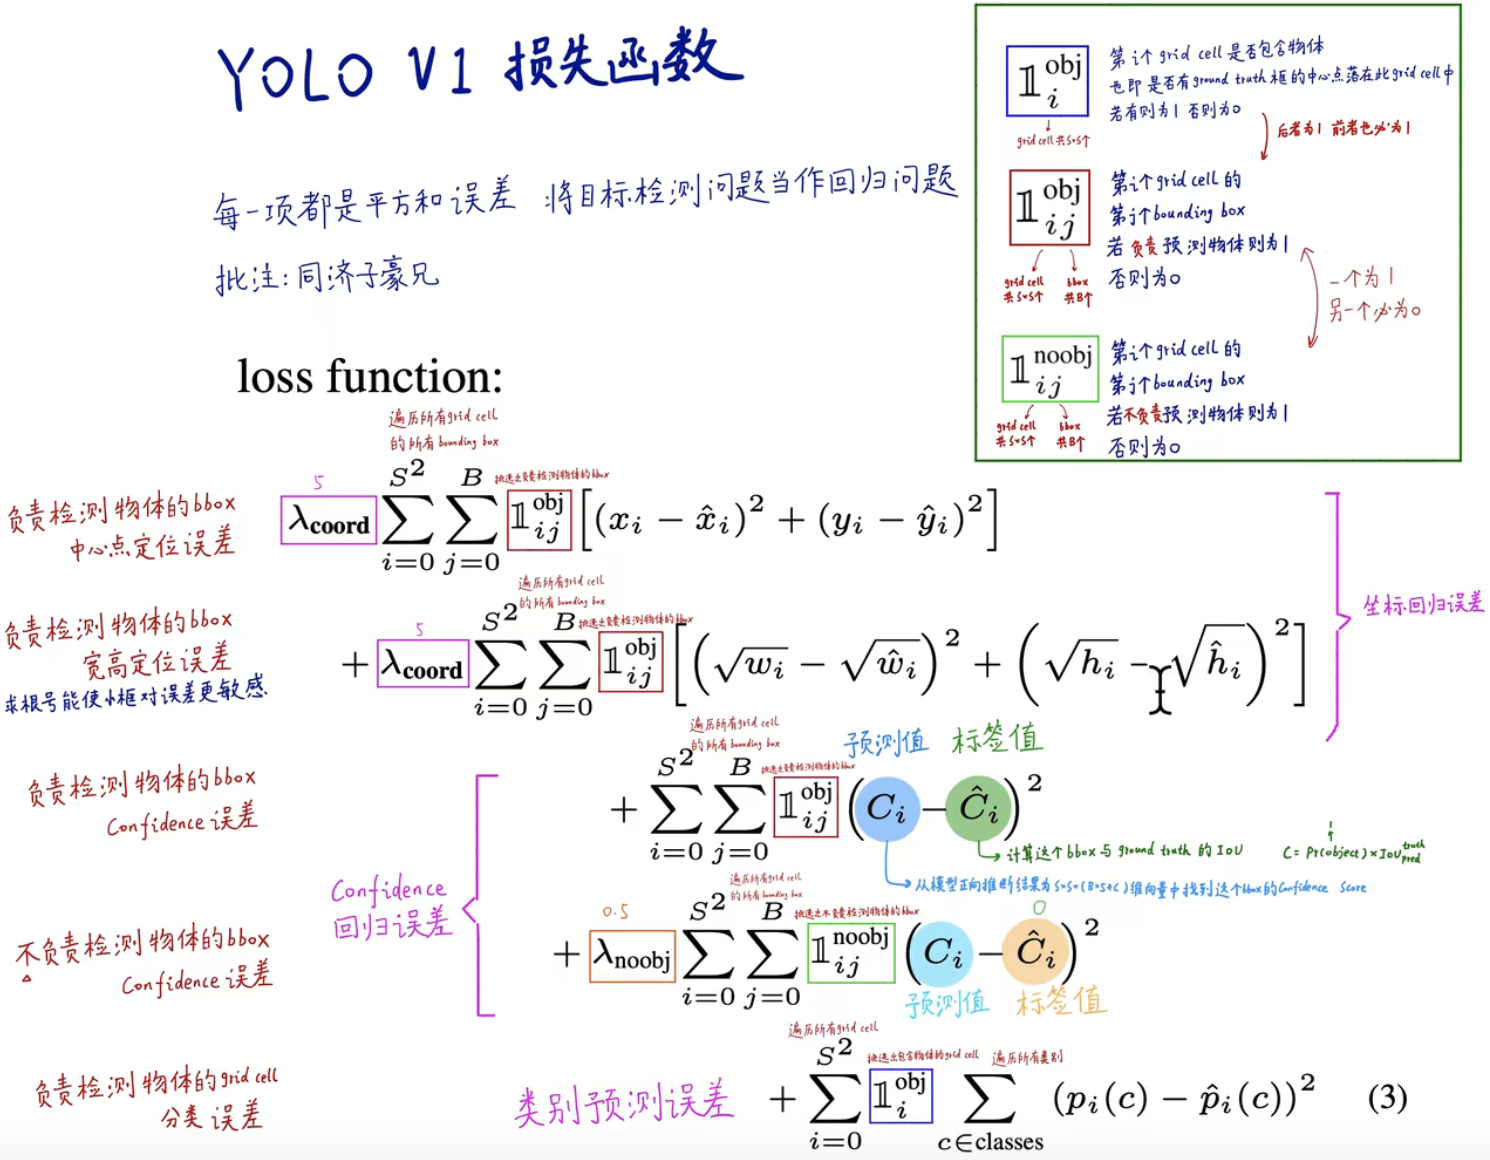 YOLO V1 损失函数
每一项都是平方和误差 将目标检测问题当作回归问题
批注:同济子豪兄
𝟙_i^obj
grid cell 共S*S个
第i个grid cell是否包含物体
也即是否有ground truth框的中心点落在此grid cell中
若有则为1 否则为0
后者为1 前者也必为1
𝟙_ij^obj
grid cell 共S*S个
bbox 共B个
第i个grid cell的
第j个bounding box
若负责预测物体则为1
否则为0
一个为1
另一个必为0
𝟙_ij^noobj
grid cell 共S*S个
bbox 共B个
第i个grid cell的
第j个bounding box
若不负责预测物体则为1
否则为0
loss function:
遍历所有grid cell
的所有bounding box
挑选出负责检测物体的bbox
负责检测物体的bbox
中心点定位误差
5
λ_coord ∑_{i=0}^{S^2} ∑_{j=0}^{B} 𝟙_ij^obj [(x_i − x̂_i)^2 + (y_i − ŷ_i)^2]
遍历所有grid cell
的所有bounding box
挑选出负责检测物体的bbox
负责检测物体的bbox
宽高定位误差
求根号能使小框对误差更敏感
5
+ λ_coord ∑_{i=0}^{S^2} ∑_{j=0}^{B} 𝟙_ij^obj [(√w_i − √ŵ_i)^2 + (√h_i − √ĥ_i)^2]
坐标回归误差
遍历所有grid cell
的所有bounding box
挑选出负责检测物体的bbox
预测值 标签值
负责检测物体的bbox
Confidence误差
+ ∑_{i=0}^{S^2} ∑_{j=0}^{B} 𝟙_ij^obj (C_i − Ĉ_i)^2
计算这个bbox与ground truth的IoU
1
C = Pr(object) × IoU_pred^truth
从模型正向推断结果为S*S*(B*5+C)维向量中找到这个bbox的Confidence Score
Confidence
回归误差
遍历所有grid cell
的所有bounding box
挑选出不负责检测物体的bbox
不负责检测物体的bbox
Confidence误差
0.5
0
+ λ_noobj ∑_{i=0}^{S^2} ∑_{j=0}^{B} 𝟙_ij^noobj (C_i − Ĉ_i)^2
预测值 标签值
遍历所有grid cell
挑选出包含物体的grid cell
遍历所有类别
负责检测物体的grid cell
分类误差
类别预测误差
+ ∑_{i=0}^{S^2} 𝟙_i^obj ∑_{c∈classes} (p_i(c) − p̂_i(c))^2 (3)